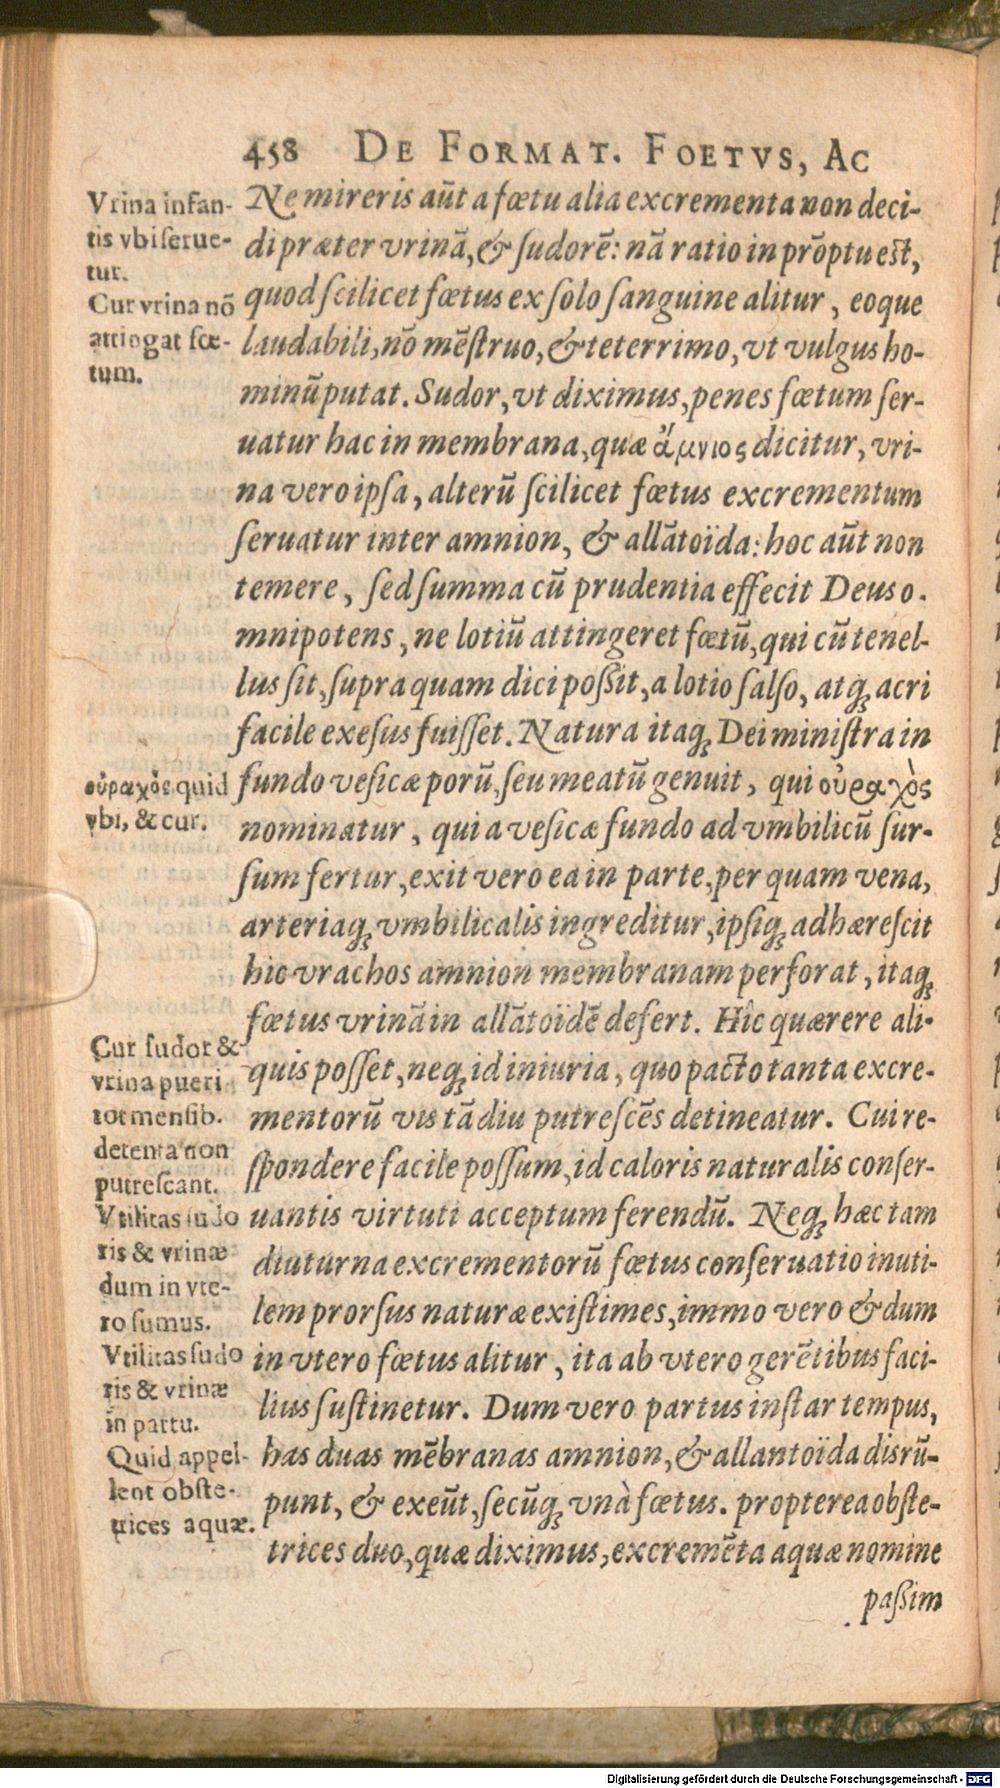 458 DE FORMAT. FOETVS, AC
Ne mireris aūt a fœtu alia excrementa non deci-
di præter vrinā, & ſudorē: nā ratio in prōptu est,
quod ſcilicet fœtus ex ſolo ſanguine alitur, eoque
laudabili, nō mēſtruo, & teterrimo, vt vulgus ho-
minū putat. Sudor, vt diximus, penes fœtum ſer-
uatur hac in membrana, quæ ἄμνιος dicitur, vri-
na vero ipſa, alterū ſcilicet fœtus excrementum
ſeruatur inter amnion, & allātoïda: hoc aūt non
temere, ſed ſumma cū prudentia effecit Deus o-
mnipotens, ne lotiū attingeret fœtū, qui cū tenel-
lus ſit, ſupra quam dici poſſit, a lotio ſalſo, atq; acri
facile exeſus fuiſſet. Natura itaq; Dei miniſtra in
fundo veſicæ porū, ſeu meatū genuit, qui οὐραχὸς
nominatur, qui a veſicæ fundo ad vmbilicū ſur-
ſum fertur, exit vero ea in parte, per quam vena,
arteriaq; vmbilicalis ingreditur, ipſiq; adhæreſcit
hic vrachos amnion membranam perforat, itaq;
fœtus vrinā in allātoïdē defert. Hîc quærere ali-
quis poſſet, neq; id iniuria, quo pacto tanta excre-
mentorū vis tādiu putreſcēs detineatur. Cui re-
ſpondere facile poſſum, id caloris naturalis conſer-
uantis virtuti acceptum ferendū. Neq; hæc tam
diuturna excrementorū fœtus conſeruatio inuti-
lem prorſus naturæ exiſtimes, immo vero & dum
in vtero fœtus alitur, ita ab vtero gerētibus faci-
lius ſuſtinetur. Dum vero partus inſtar tempus,
has duas mēbranas amnion, & allantoïda disrū-
punt, & exeūt, ſecūq; vnà fœtus. propterea obſte-
trices duo, quæ diximus, excremēta aquæ nomine
paſſim
Vrina infan-
tis vbi ſerue-
tur.
Cur vrina nō
attingat fœ-
tum.
οὐραχὸς quid
vbi, & cur.
Cur ſudor &
vrina pueri
tot menſib.
detenta non
putreſcant.
Vtilitas ſudo
ris & vrinæ
dum in vte-
ro ſumus.
Vtilitas ſudo
ris & vrinæ
in partu.
Quid appel-
lent obſte-
trices aquæ.
Digitalisierung gefördert durch die Deutsche Forschungsgemeinschaft - DFG